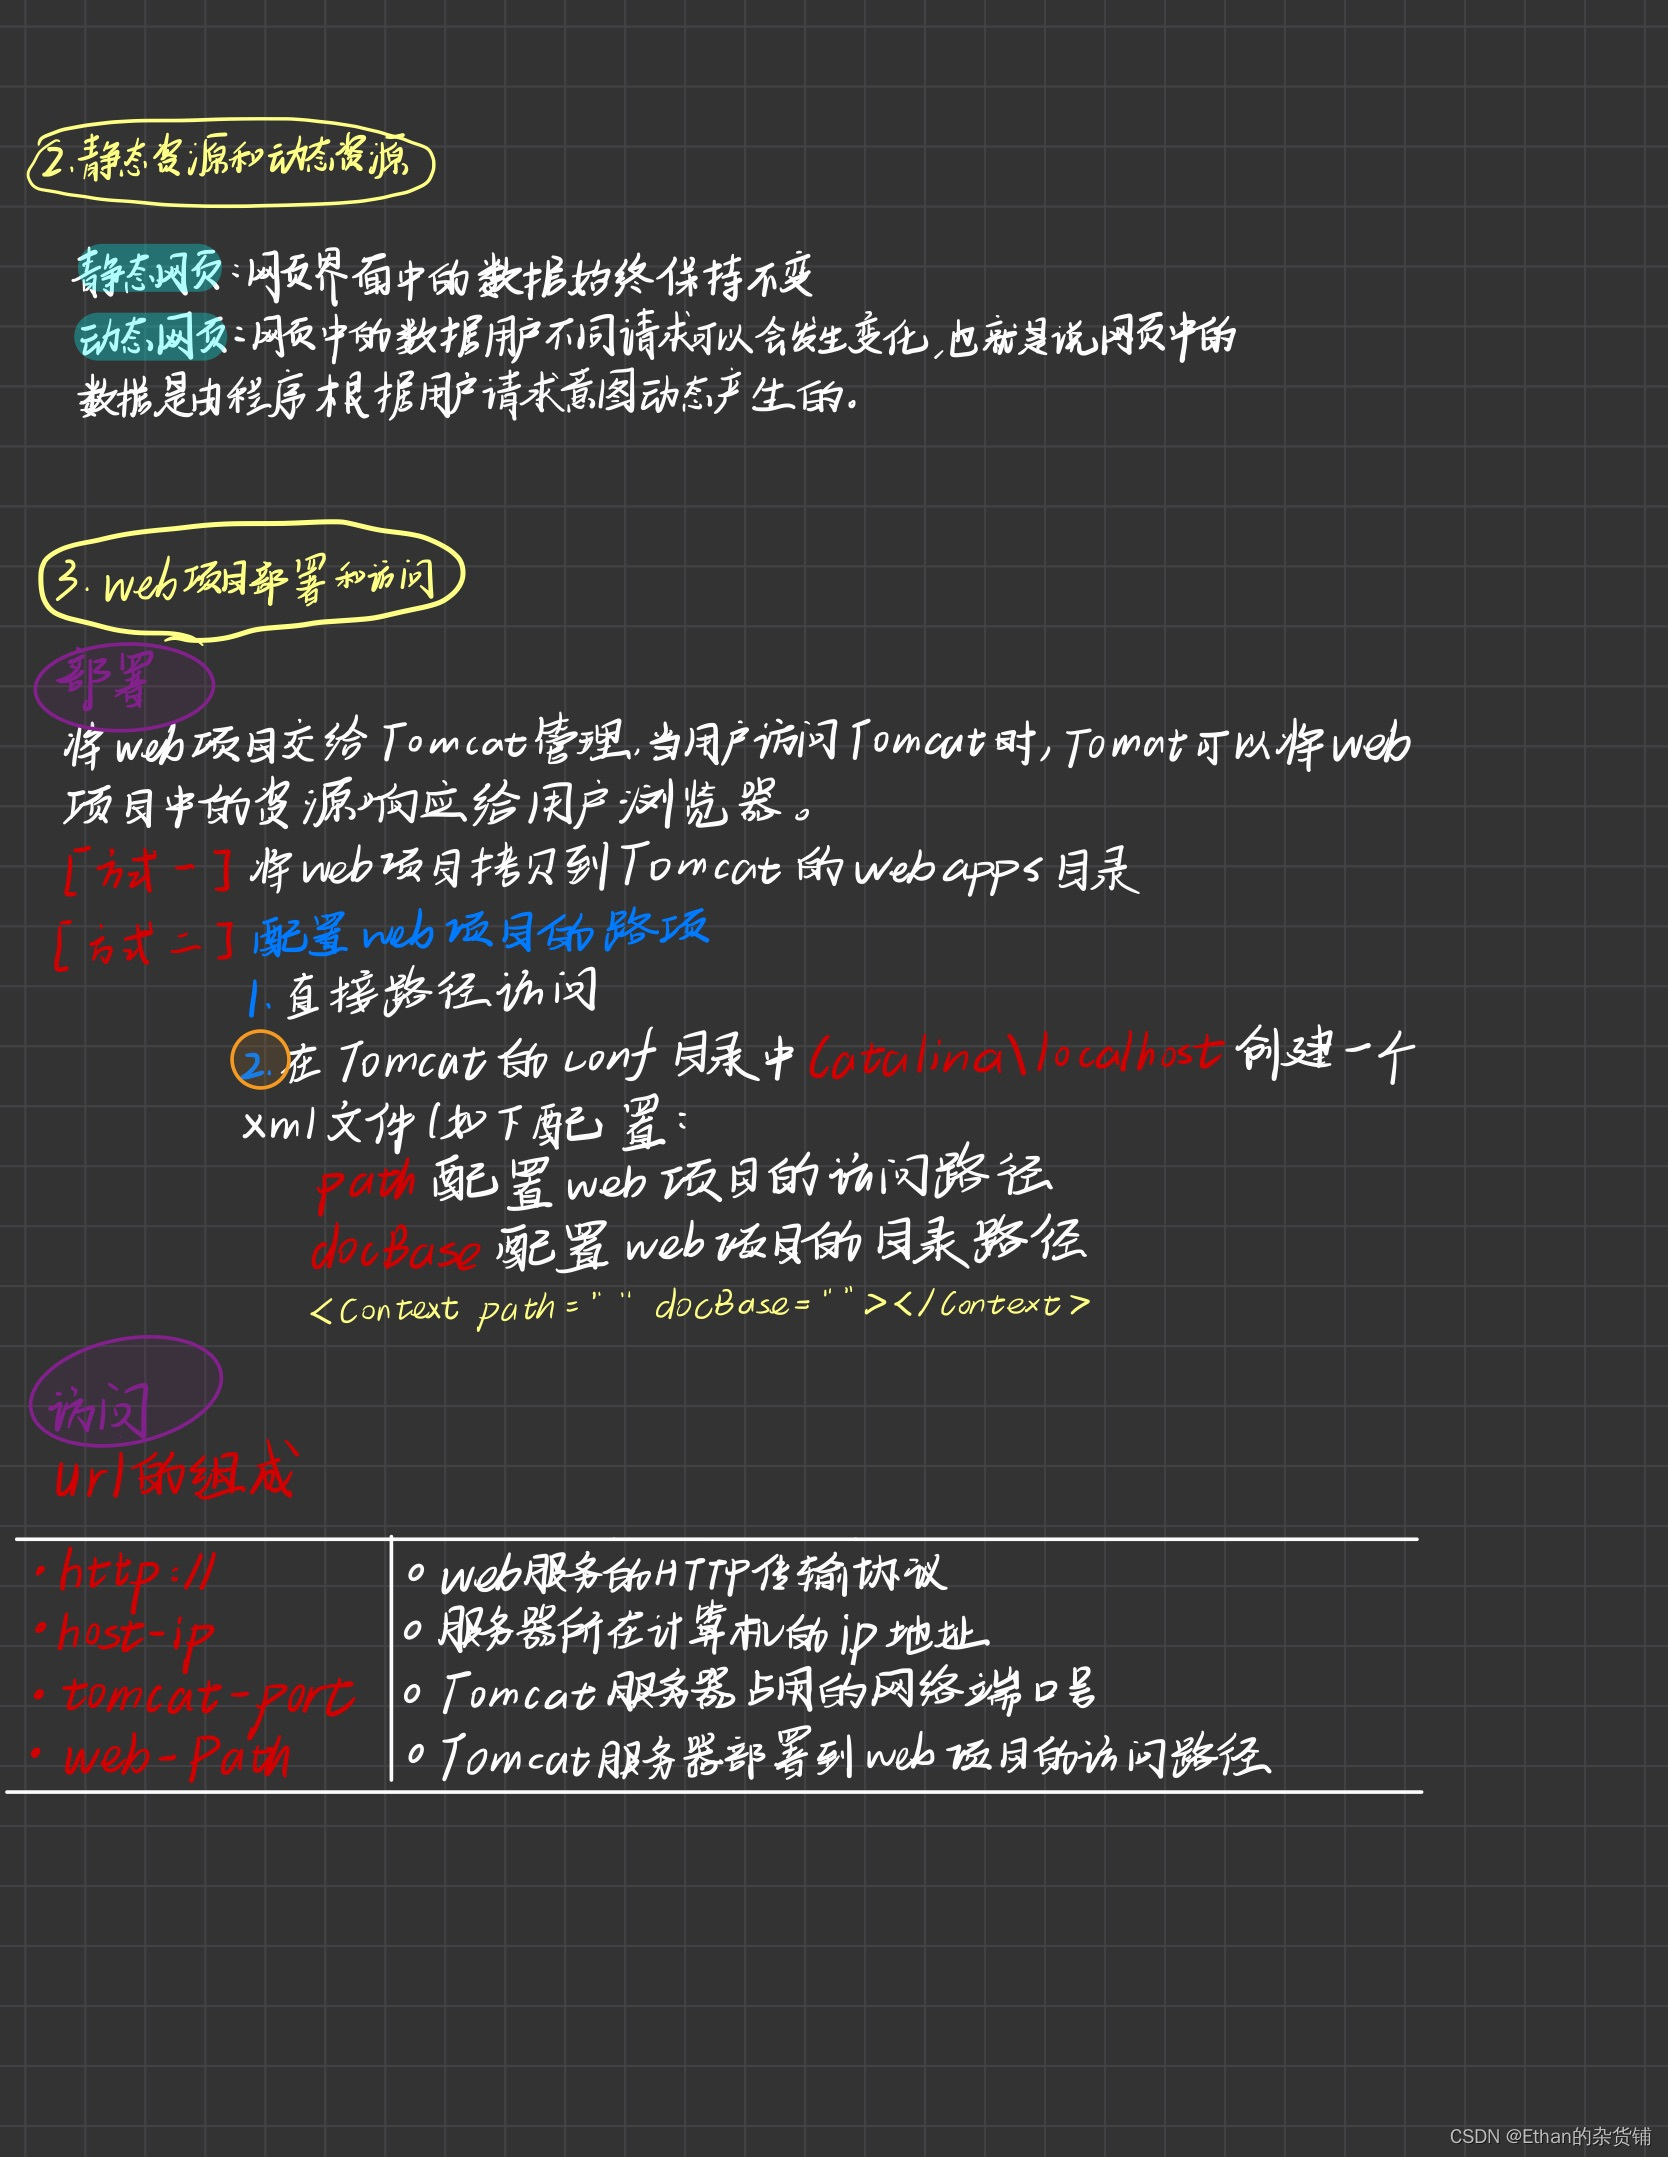 2.静态资源和动态资源
静态网页:网页界面中的数据始终保持不变
动态网页:网页中的数据用户不同请求可以会发生变化,也就是说网页中的
数据是由程序根据用户请求意图动态产生的.
3.web项目部署和访问
部署
将web项目交给Tomcat管理,当用户访问Tomcat时,Tomat可以将web
项目中的资源响应给用户浏览器。
[方式一]将web项目拷贝到Tomcat的webapps目录
[方式二]配置web项目的路项
1.直接路径访问
2.在Tomcat的conf目录中Catalina\localhost创建一个
xml文件(如下配置:
path配置web项目的访问路径
docBase配置web项目的目录路径
<Context path="" docBase=""></Context>
访问
url的组成
•http:// web服务的HTTP传输协议
•host-ip 服务器所在计算机的ip地址
•tomcat-port Tomcat服务器占用的网络端口号
•web-Path Tomcat服务器部署到web项目的访问路径
CSDN @Ethan的杂货铺